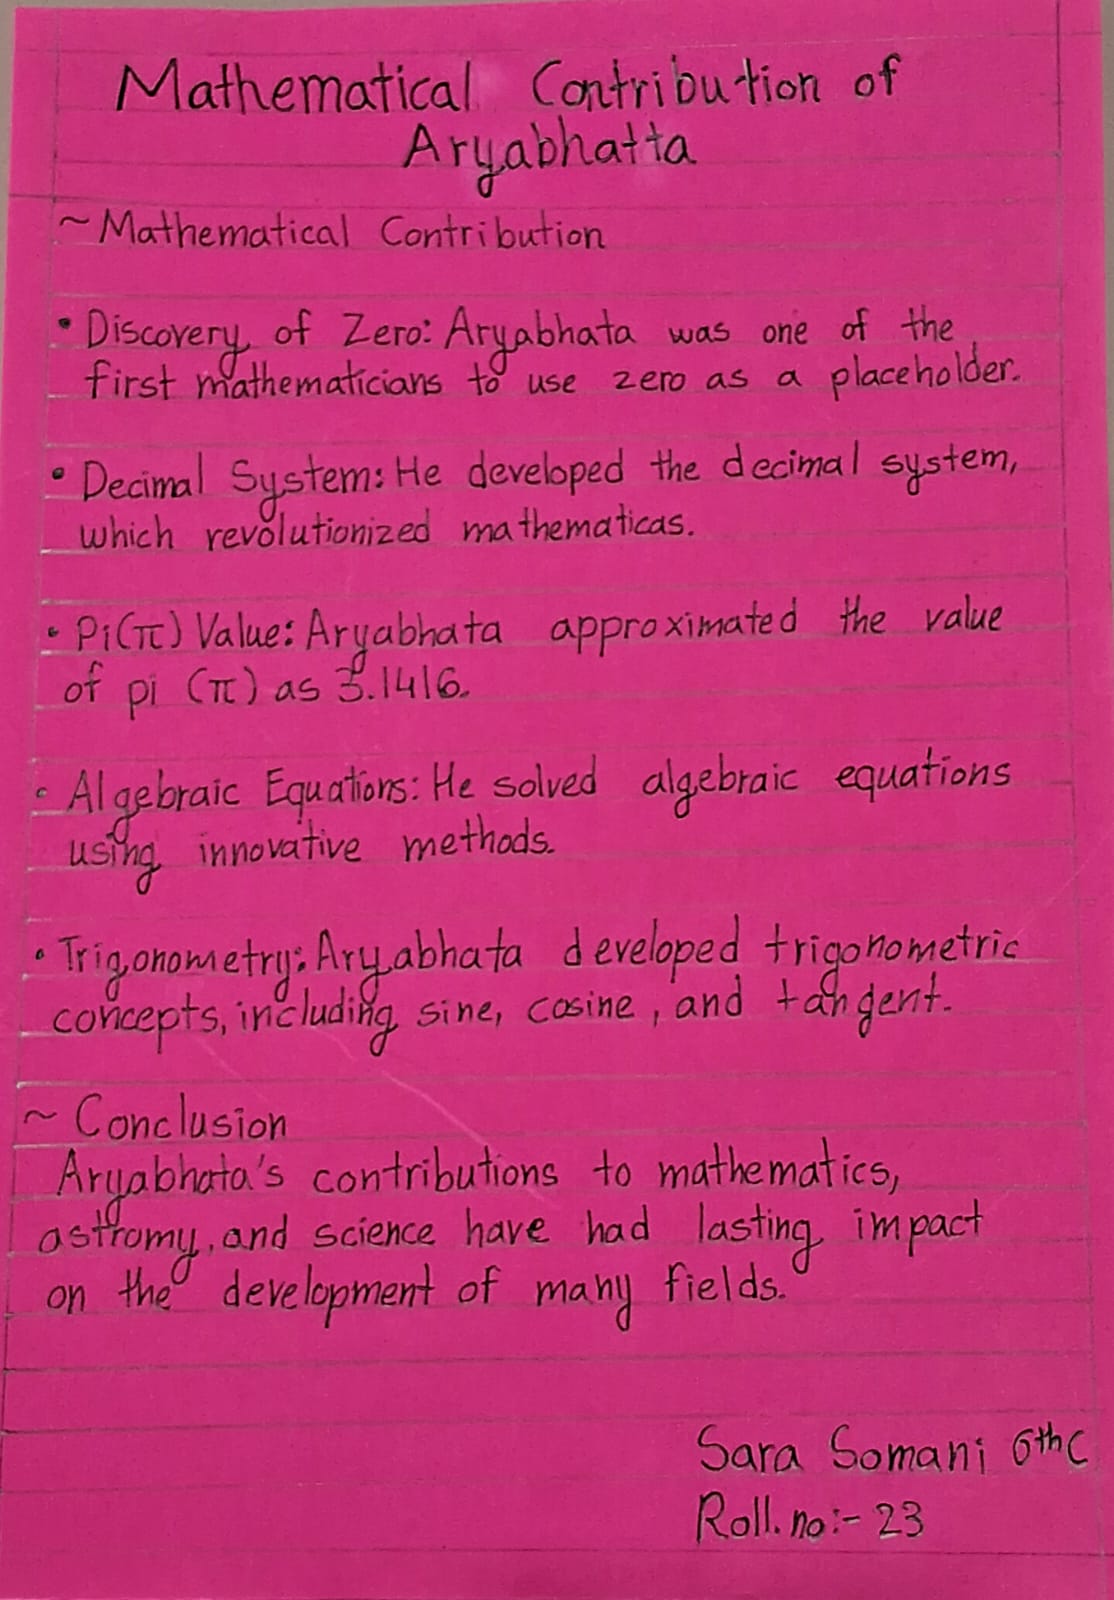 Mathematical Contribution of
Aryabhatta
~ Mathematical Contribution
• Discovery of Zero: Aryabhata was one of the
first mathematicians to use zero as a placeholder.
• Decimal System: He developed the decimal system,
which revolutionized mathematicas.
• Pi(π) Value: Aryabhata approximated the value
of pi (π) as 3.1416.
• Algebraic Equations: He solved algebraic equations
using innovative methods.
• Trigonometry: Aryabhata developed trigonometric
concepts, including sine, cosine, and tangent.
~ Conclusion
Aryabhata's contributions to mathematics,
astromy, and science have had lasting impact
on the development of many fields.
Sara Somani 6th C
Roll. no:- 23